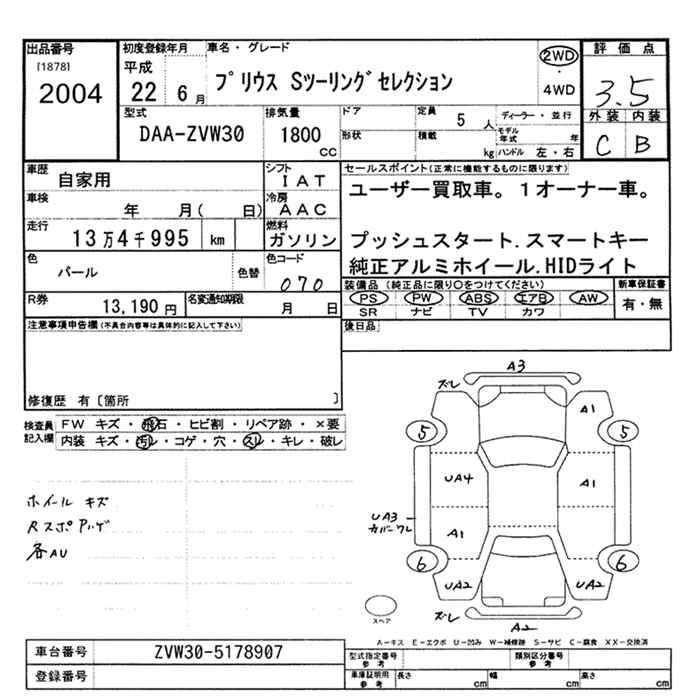 出品番号
[1878]
2004
初度登録年月
平成
22 6 月
車名・グレード
プリウス Sツーリングセレクション
2WD
・
4WD
評価点
3.5
外装 内装
C B
型式
DAA-ZVW30
排気量
1800
CC
ドア
形状
定員
5 人
積載
kg
ディーラー・並行
モデル年式 年
ハンドル 左・右
車歴
自家用
シフト
IAT
車検
年 月( 日)
冷房
AAC
走行
13万4千995 km
燃料
ガソリン
色
パール
色替
色コード
070
R券
13,190 円
名変通知期限
月 日
セールスポイント(正常に機能するものに限ります)
ユーザー買取車。1オーナー車。
プッシュスタート.スマートキー
純正アルミホイール.HIDライト
装備品(純正品に限り○をつけてください)
PS PW ABS エアB AW
SR ナビ TV カワ
新車保証書
有・無
後日品
注意事項申告欄(不具合内容等は具体的に記入して下さい)
修復歴 有〔箇所 〕
検査員記入欄
FW キズ・飛石・ヒビ割・リペア跡・×要
内装 キズ・汚レ・コゲ・穴・スレ・キレ・破レ
ホイール キズ
Rスポ アハゲ
各AU
A3
ズレ
A1
5
5
UA4
A1
UA3
カバーワレ
A1
6
6
UA2
UA2
ズレ
A2
スペア
A-キズ E-エクボ U-凹み W-補修跡 S-サビ C-腐食 XX-交換済
車台番号
ZVW30-5178907
登録番号
型式指定番号
参考
類別区分番号
参考
車庫証明用
参考
長さ cm
幅 cm
高さ cm